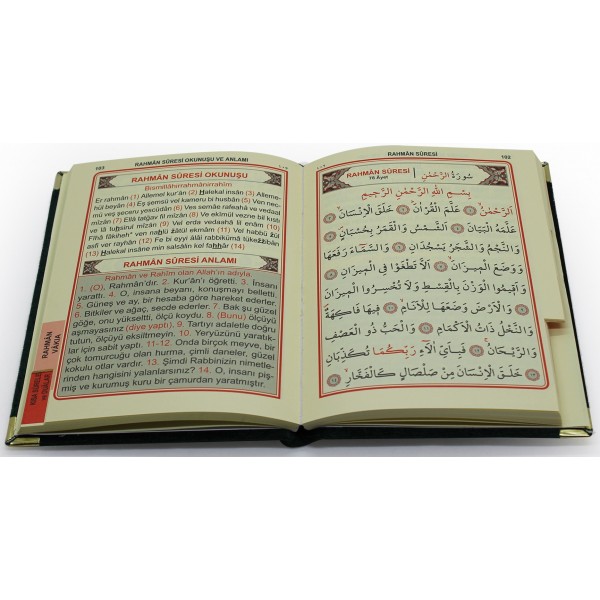 103
RAHMÂN SÛRESİ OKUNUŞU VE ANLAMI
١٠٣
RAHMÂN SÛRESİ OKUNUŞU
Bismillâhirrahmânirrahîm
Er rahmân (1) Allemel kur'ân (2) Halekal insân (3) Alleme-
hül beyân (4) Eş şemsü vel kameru bi husbân (5) Ven nec-
mü veş şeceru yescüdân (6) Ves semâe rafeahâ ve vedaal
mîzân (7) Ellâ tatğav fil mîzân (8) Ve ekîmul vezne bil kıstı
ve lâ tuhsirul mîzân (9) Vel arda vedaahâ lil enâm (10)
Fîhâ fâkiheh* ven nahlü zâtül ekmâm (11) Vel habbü zül
asfi ver rayhân (12) Fe bi eyyi âlâi rabbikümâ tükezzibân
(13) Halekal insâne min salsâlin kel fahhâr (14)
RAHMÂN SÛRESİ ANLAMI
Rahmân ve Rahîm olan Allah'ın adıyla.
1. (O), Rahmân'dır. 2. Kur'ân'ı öğretti. 3. İnsanı
yarattı. 4. O, insana beyanı, konuşmayı belletti.
5. Güneş ve ay, bir hesaba göre hareket ederler.
6. Bitkiler ve ağaç, secde ederler. 7. Bak şu güzel
göğe, onu yükseltti, ölçü koydu. 8. (Bunu) ölçüyü
aşmayasınız (diye yaptı). 9. Tartıyı adaletle doğru
tutun, ölçüyü eksiltmeyin. 10. Yeryüzünü yaratık-
lar için sabit yaptı. 11-12. Onda birçok meyve, bir
çok tomurcuğu olan hurma, çimli daneler, güzel
kokulu otlar vardır. 13. Şimdi Rabbinizin nimetle-
rinden hangisini yalanlarsınız? 14. O, insanı piş-
miş ve kurumuş kuru bir çamurdan yaratmıştır.
RAHMÂN
VÂKIA
RAHMÂN SÛRESİ
102
RAHMÂN SÛRESİ
78 Âyet
سُورَةُ الرَّحْمٰنِ
بِسْمِ اللّٰهِ الرَّحْمٰنِ الرَّحِيمِ
اَلرَّحْمٰنُۙ ١ عَلَّمَ الْقُرْاٰنَۜ ٢ خَلَقَ الْاِنْسَانَۙ ٣
عَلَّمَهُ الْبَيَانَ ٤ اَلشَّمْسُ وَالْقَمَرُ بِحُسْبَانٍۙ ٥
وَالنَّجْمُ وَالشَّجَرُ يَسْجُدَانِ ٦ وَالسَّمَٓاءَ رَفَعَهَا
وَوَضَعَ الْمِيزَانَۙ ٧ اَلَّا تَطْغَوْا فِي الْمِيزَانِ ٨
وَاَقِيمُوا الْوَزْنَ بِالْقِسْطِ وَلَا تُخْسِرُوا الْمِيزَانَ ٩
وَالْاَرْضَ وَضَعَهَا لِلْاَنَامِۙ ١٠ فِيهَا فَاكِهَةٌۖ
وَالنَّخْلُ ذَاتُ الْاَكْمَامِۖ ١١ وَالْحَبُّ ذُو الْعَصْفِ
وَالرَّيْحَانُۚ ١٢ فَبِاَيِّ اٰلَٓاءِ رَبِّكُمَا تُكَذِّبَانِ
١٣ خَلَقَ الْاِنْسَانَ مِنْ صَلْصَالٍ كَالْفَخَّارِۙ ١٤